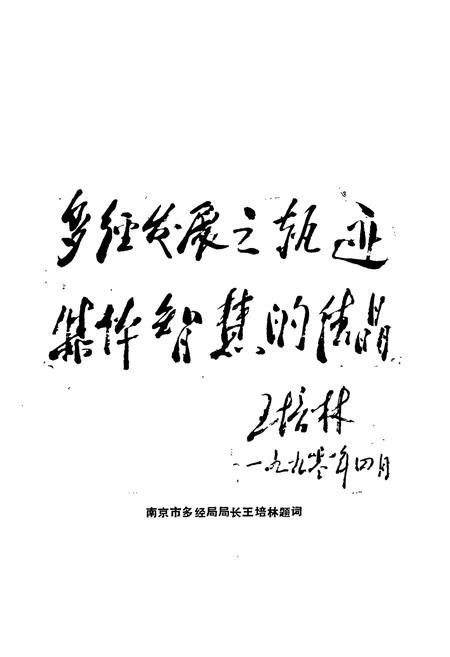 多经发展之轨迹
集体智慧的结晶
王培林
一九九零年四月
南京市多经局局长王培林题词